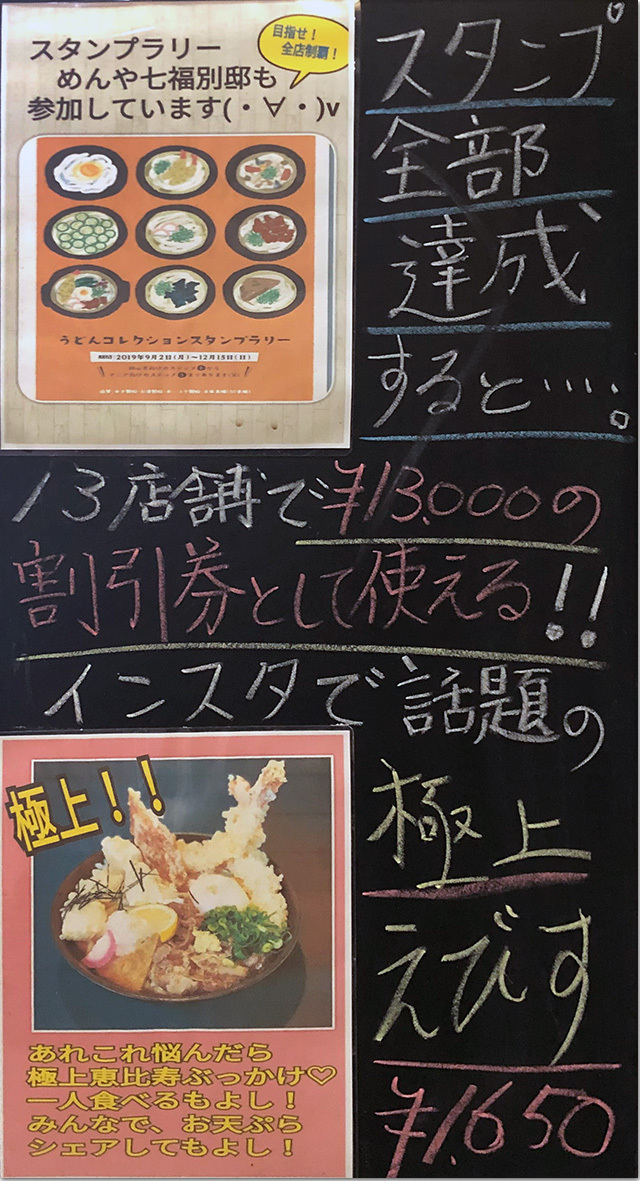 スタンプラリー
めんや七福別邸も
参加しています(・∀・)v
目指せ！
全店制覇！
うどんコレクションスタンプラリー
2019年9月2日(月)～12月15日(日)
スタンプ
全部
達成
すると….。
13店舗で¥13,000の
割引券として使える!!
インスタで話題の
極上！！
あれこれ悩んだら
極上恵比寿ぶっかけ♡
一人食べるもよし！
みんなで、お天ぷら
シェアしてもよし！
極上
えびす
¥1,650